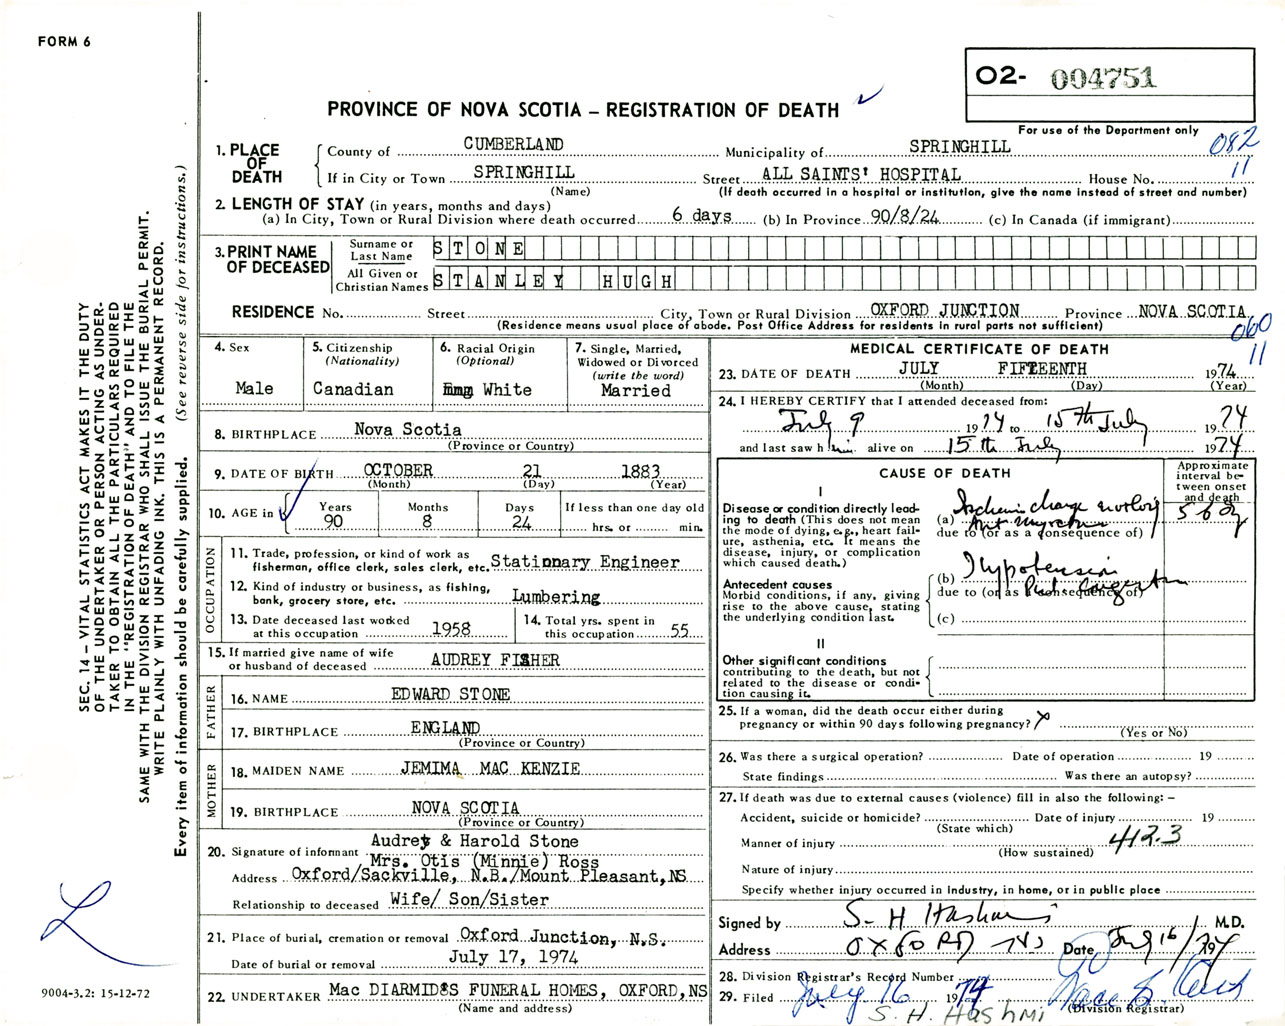 FORM 6
O2- 004751
PROVINCE OF NOVA SCOTIA – REGISTRATION OF DEATH
For use of the Department only
082
11
1. PLACE OF DEATH
County of CUMBERLAND Municipality of SPRINGHILL
If in City or Town SPRINGHILL Street ALL SAINTS' HOSPITAL House No.
(Name) (If death occurred in a hospital or institution, give the name instead of street and number)
2. LENGTH OF STAY (in years, months and days)
(a) In City, Town or Rural Division where death occurred 6 days (b) In Province 90/8/24 (c) In Canada (if immigrant)
3. PRINT NAME OF DECEASED
Surname or Last Name STONE
All Given or Christian Names STANLEY HUGH
RESIDENCE No. Street City, Town or Rural Division OXFORD JUNCTION Province NOVA SCOTIA
(Residence means usual place of abode. Post Office Address for residents in rural parts not sufficient)
060
11
4. Sex
Male
5. Citizenship
(Nationality)
Canadian
6. Racial Origin
(Optional)
White
7. Single, Married,
Widowed or Divorced
(write the word)
Married
8. BIRTHPLACE Nova Scotia
(Province or Country)
9. DATE OF BIRTH OCTOBER 21 1883
(Month) (Day) (Year)
10. AGE in
Years Months Days If less than one day old
90 8 24 hrs. or min.
OCCUPATION
11. Trade, profession, or kind of work as
fisherman, office clerk, sales clerk, etc. Stationary Engineer
12. Kind of industry or business, as fishing,
bank, grocery store, etc. Lumbering
13. Date deceased last worked
at this occupation 1958
14. Total yrs. spent in
this occupation 55
15. If married give name of wife
or husband of deceased AUDREY FISHER
FATHER
16. NAME EDWARD STONE
17. BIRTHPLACE ENGLAND
(Province or Country)
MOTHER
18. MAIDEN NAME JEMIMA MAC KENZIE
19. BIRTHPLACE NOVA SCOTIA
(Province or Country)
Audrey & Harold Stone
20. Signature of informant Mrs. Otis (Minnie) Ross
Address Oxford/Sackville, N.B./Mount Pleasant,NS
Relationship to deceased Wife/ Son/Sister
21. Place of burial, cremation or removal Oxford Junction, N.S.
Date of burial or removal July 17, 1974
22. UNDERTAKER Mac DIARMID'S FUNERAL HOMES, OXFORD,NS
(Name and address)
MEDICAL CERTIFICATE OF DEATH
23. DATE OF DEATH JULY FIFTEENTH 1974
(Month) (Day) (Year)
24. I HEREBY CERTIFY that I attended deceased from:
July 9 1974 to 15th July 1974
and last saw him alive on 15th July 1974
CAUSE OF DEATH
Approximate
interval be-
tween onset
and death
I
Disease or condition directly lead-
ing to death (This does not mean
the mode of dying, e.g., heart fail-
ure, asthenia, etc. It means the
disease, injury, or complication
which caused death.)
(a) Ischemic change
due to (or as a consequence of)
Antecedent causes
Morbid conditions, if any, giving
rise to the above cause, stating
the underlying condition last.
(b) Hypotension
due to (or as consequence of)
(c)
II
Other significant conditions
contributing to the death, but not
related to the disease or condi-
tion causing it.
25. If a woman, did the death occur either during
pregnancy or within 90 days following pregnancy? x
(Yes or No)
26. Was there a surgical operation? Date of operation 19
State findings Was there an autopsy?
27. If death was due to external causes (violence) fill in also the following: –
Accident, suicide or homicide? Date of injury 19
(State which)
Manner of injury 412.3
(How sustained)
Nature of injury
Specify whether injury occurred in industry, in home, or in public place
Signed by S. H. Hashmi M.D.
Address OXFORD NS Date July 16/74
28. Division Registrar's Record Number
29. Filed July 16 1974
(Division Registrar)
S. H. Hashmi
SEC. 14 – VITAL STATISTICS ACT MAKES IT THE DUTY
OF THE UNDERTAKER OR PERSON ACTING AS UNDER-
TAKER TO OBTAIN ALL THE PARTICULARS REQUIRED
IN THE "REGISTRATION OF DEATH" AND TO FILE THE
SAME WITH THE DIVISION REGISTRAR WHO SHALL ISSUE THE BURIAL PERMIT.
WRITE PLAINLY WITH UNFADING INK. THIS IS A PERMANENT RECORD.
Every item of information should be carefully supplied. (See reverse side for instructions.)
9004-3.2: 15-12-72